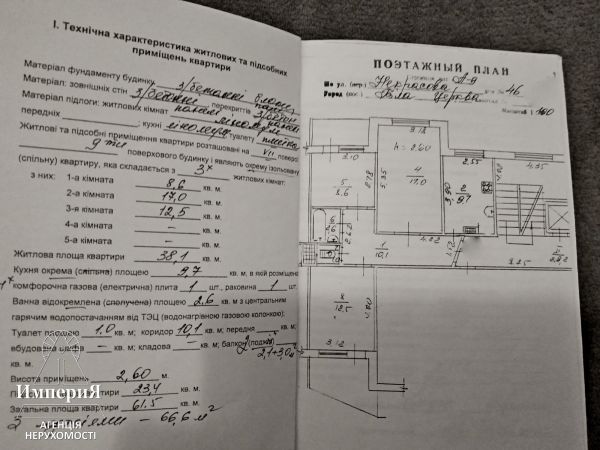 І. Технічна характеристика житлових та підсобних
приміщень квартири
Матеріал фундаменту будинку з/бетонні блоки
Матеріал: зовнішніх стін з/бетонні перекриття
Матеріал підлоги: житлових кімнат лінолеум
передніх кухні лінолеум туалету плитка
Житлові та підсобні приміщення квартири розташовані на VII поверсі
9 ти поверхового будинку і являють окрему ізольовану
(спільну) квартиру, яка складається з 3х житлових кімнат:
з них: 1-а кімната 8,6 кв. м.
2-а кімната 17,0 кв. м.
3-я кімната 12,5 кв. м.
4-а кімната – кв. м.
5-а кімната – кв. м.
Житлова площа квартири 38,1 кв. м.
Кухня окрема (спільна) площею 9,7 кв. м, в якій розміщена
4х комфорочна газова (електрична) плита 1 шт., раковина 1 шт.
Ванна відокремлена (сполучена) площею 2,6 кв. м з центральним
гарячим водопостачанням від ТЭЦ (водонагрівною газовою колонкою);
Туалет площею 1,0 кв. м; коридор 10,1 кв. м; передня – кв. м;
вбудована шафа – кв. м; кладова – кв. м; балкон (лоджія) 2,1+3,0 м²
кв. м.
Висота приміщень 2,60 м.
площа квартири 23,4 кв. м.
Загальна площа квартири 61,5 кв. м.
З лоджіями – 66,6 м²
ИмпериЯ
АГЕНЦІЯ
НЕРУХОМОСТІ
ПОЭТАЖНЫЙ ПЛАН
По ул. (пер.) Некрасова № 46
Город (пос.) Біла Церква
Масштаб 1:100
3.10
3.18
h = 2.60
2.55
4.35
5
8.6
2.78
5.35
4
17.0
3.80
2
9.7
4.22
1
10.1
2.62
8.25
3
12.5
4.00
3.12